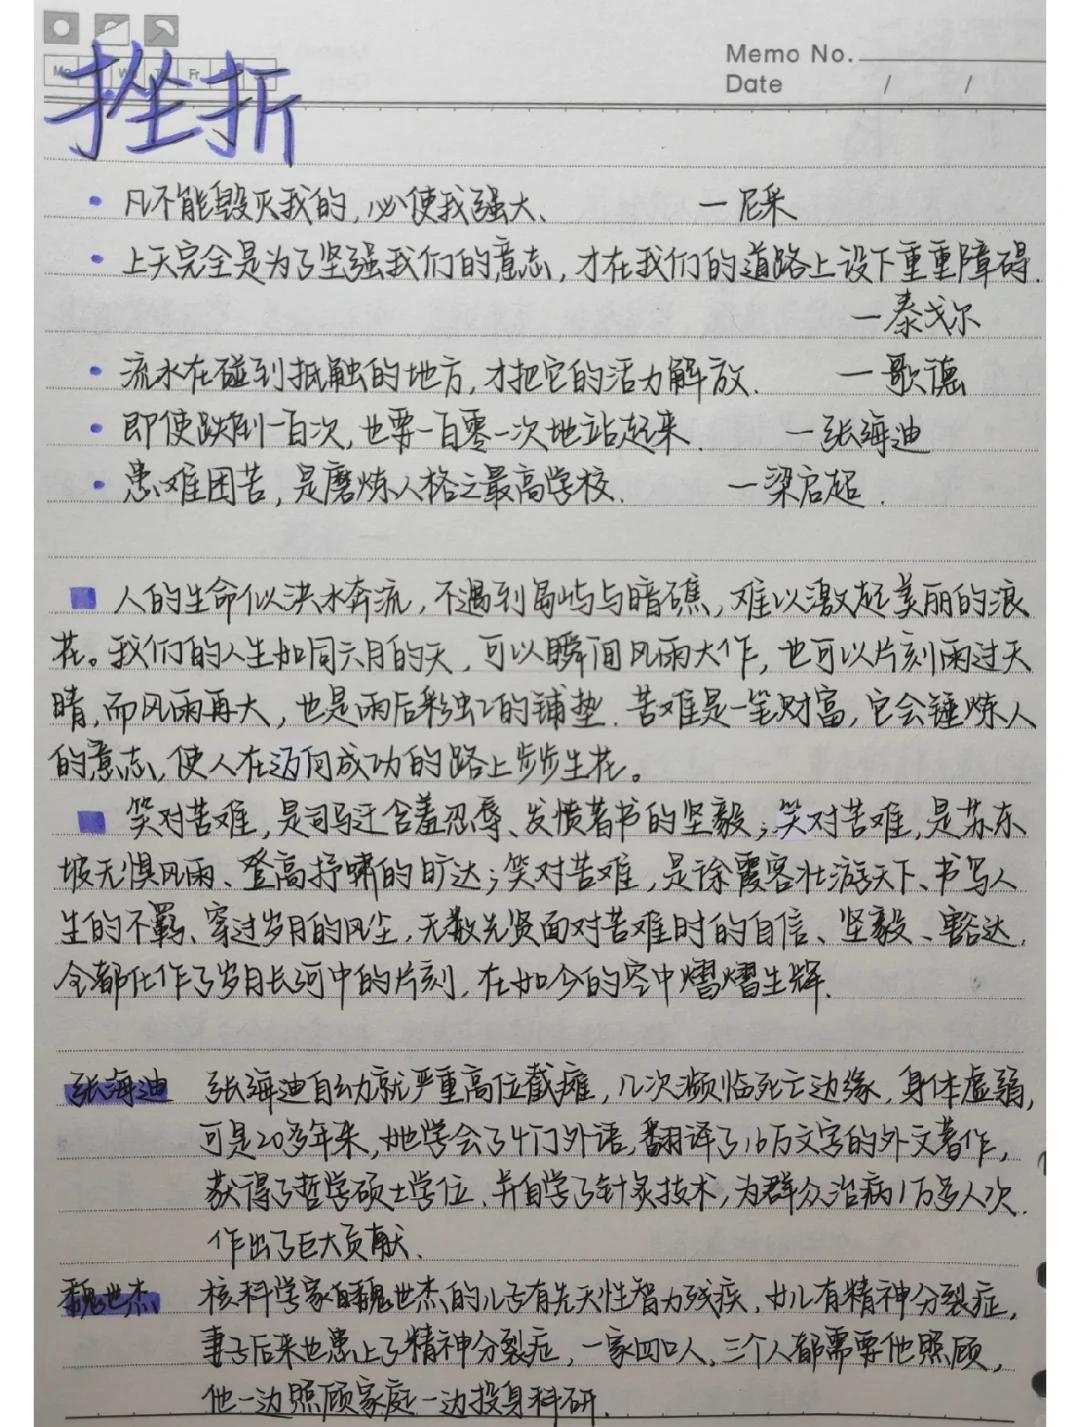 Memo No.
Date / /
挫折
• 凡不能毁灭我的,必使我强大、 —尼采
• 上天完全是为了坚强我们的意志,才在我们的道路上设下重重障碍.
—泰戈尔
• 流水在碰到抵触的地方,才把它的活力解放. —歌德
• 即使跌倒一百次,也要一百零一次地站起来. —张海迪
• 患难困苦,是磨炼人格之最高学校. —梁启超.
人的生命似洪水奔流,不遇到岛屿与暗礁,难以激起美丽的浪
花。我们的人生如同六月的天,可以瞬间风雨大作,也可以片刻雨过天
晴,而风雨再大,也是雨后彩虹的铺垫.苦难是一笔财富,它会锤炼人
的意志,使人在迈向成功的路上步步生花。
笑对苦难,是司马迁含羞忍辱、发愤著书的坚毅;笑对苦难,是苏东
坡无惧风雨、登高抒啸的旷达;笑对苦难,是徐霞客壮游天下、书写人
生的不羁、穿过岁月的风尘,无数先贤面对苦难时的自信、坚毅、豁达,
全都化作了岁月长河中的片刻,在如今的空中熠熠生辉.
张海迪 张海迪自幼就严重高位截瘫,几次濒临死亡边缘,身体虚弱,
可是20多年来,她学会了4门外语,翻译了16万文字的外文著作,
获得了哲学硕士学位、并自学了针灸技术,为群众治病1万多人次.
作出了巨大贡献、
魏世杰 核科学家魏世杰的儿子有先天性智力残疾,女儿有精神分裂症,
妻子后来也患上了精神分裂症,一家四口人,三个人都需要他照顾,
他一边照顾家庭一边投身科研.